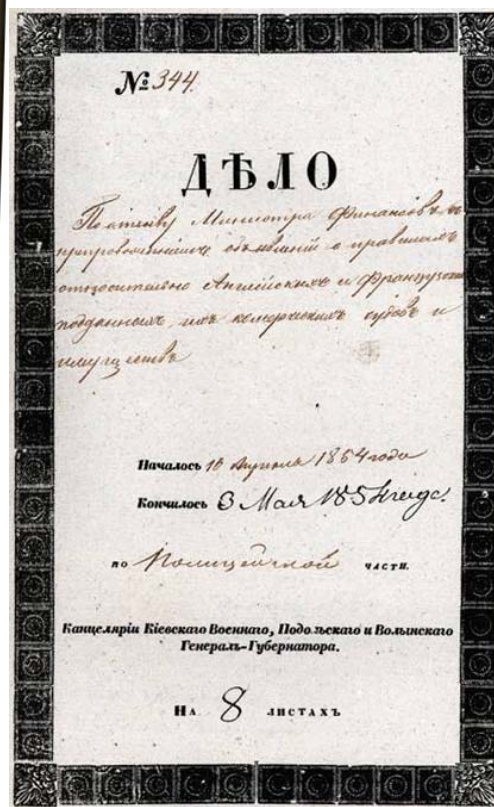 № 344.
ДѢЛО
По отзыву Министра Финансовъ съ
препровожденіемъ объявленій о правилахъ
относительно Англійскихъ и Французскихъ
подданныхъ, ихъ комерческихъ судовъ и
имуществъ
Началось 16 Апрѣля 1854 года
Кончилось 3 Мая 1854 года.
по Полицейской части.
Канцеляріи Кіевскаго Военнаго, Подольскаго и Волынскаго
Генералъ-Губернатора.
На 8 листахъ